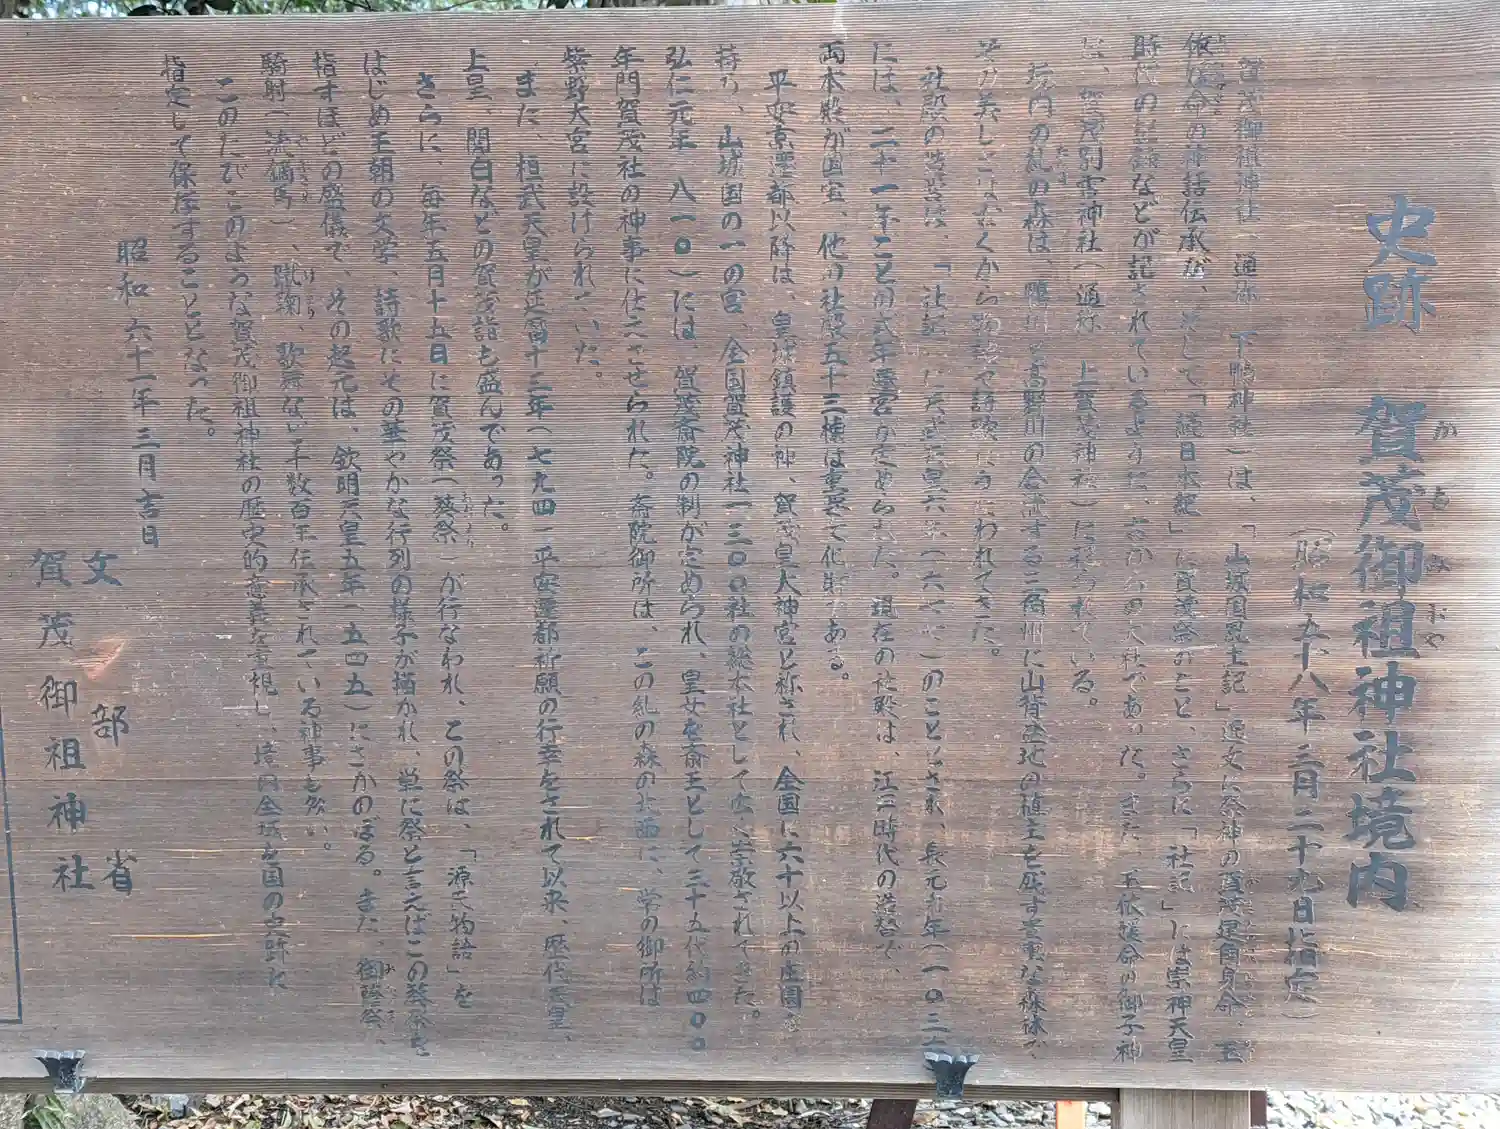 史跡 賀茂御祖神社境内
(昭和五十八年三月二十九日指定)
賀茂御祖神社(通称 下鴨神社)は、「山城国風土記」逸文に祭神の賀茂建角身命、玉
依媛命の神話伝承が、そして「続日本紀」に賀茂祭のこと、さらに「社記」には崇神天皇
時代の記録などが記されているように、古からの大社であった。また、玉依媛命の御子神
は、賀茂別雷神社(通称 上賀茂神社)に祀られている。
糺の森は、鴨川と高野川の合流する三角州に山背盆地の植生を残す貴重な森林で、
その美しさは古くから物語や詩歌にうたわれてきた。
社殿の造営は、「社記」に天武天皇六年(六七七)のこととされ、長元九年(一〇三六)
には、二十一年ごとの式年遷宮が定められた。現在の社殿は、江戸時代の造替で、
両本殿が国宝、他の社殿五十三棟は重要文化財である。
平安京遷都以降は、皇城鎮護の神、賀茂皇大神宮と称され、全国に六十以上の庄園を
持ち、山城国の一の宮、全国賀茂神社一三〇〇社の総本社として広く崇敬されてきた。
弘仁元年(八一〇)には、賀茂斎院の制が定められ、皇女を斎王として三十五代約四〇〇
年間賀茂社の神事に仕えさせられた。斎院御所は、この糺の森の北西に、学の御所は
紫野大宮に設けられていた。
また、桓武天皇が延暦十三年(七九四)平安遷都祈願の行幸をされて以来、歴代天皇、
上皇、関白などの賀茂詣も盛んであった。
さらに、毎年五月十五日に賀茂祭(葵祭)が行なわれ、この祭は、「源氏物語」を
はじめ王朝の文学、詩歌にその華やかな行列の様子が描かれ、単に祭と言えばこの葵祭を
指すほどの盛儀で、その起元は、欽明天皇五年(五四五)にさかのぼる。また、御蔭祭、
騎射(流鏑馬)、蹴鞠、歌舞など千数百年伝承されている神事も多い。
このたびこのような賀茂御祖神社の歴史的意義を重視し、境内全域を国の史跡に
指定して保存することとなった。
昭和六十一年三月吉日
文部省
賀茂御祖神社